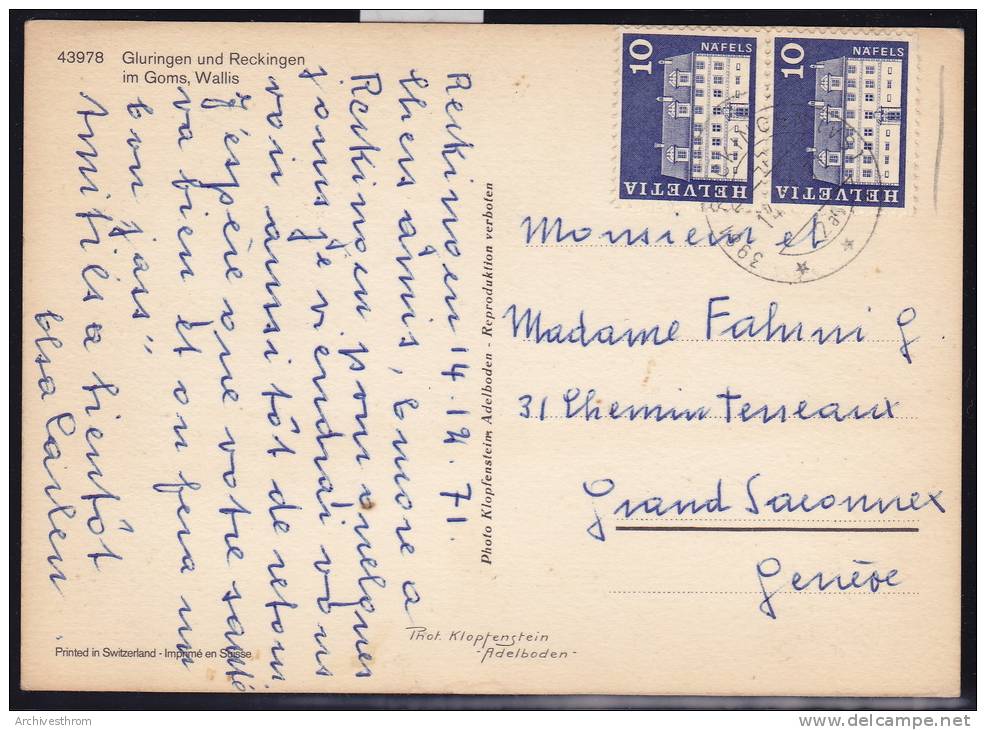 43978 Gluringen und Reckingen
im Goms, Wallis
Reckingen 14.12.71.
Chers amis, encore a
Reckingen pour quelques
jours je viendrai vous
voir aussi tôt de retour
J'espère que votre santé
va bien et on fera un
bon "jass"
Amitiés a bientôt
Elsa
Printed in Switzerland - Imprimé en Suisse
Photo Klopfenstein, Adelboden - Reproduktion verboten
Phot. Klopfenstein
- Adelboden -
10 NÄFELS
HELVETIA
10 NÄFELS
HELVETIA
Monsieur et
Madame Fahrni G.
31 Chemin Terreaux
Grand Saconnex
Genève
Archivesthrom
www.delcampe.net